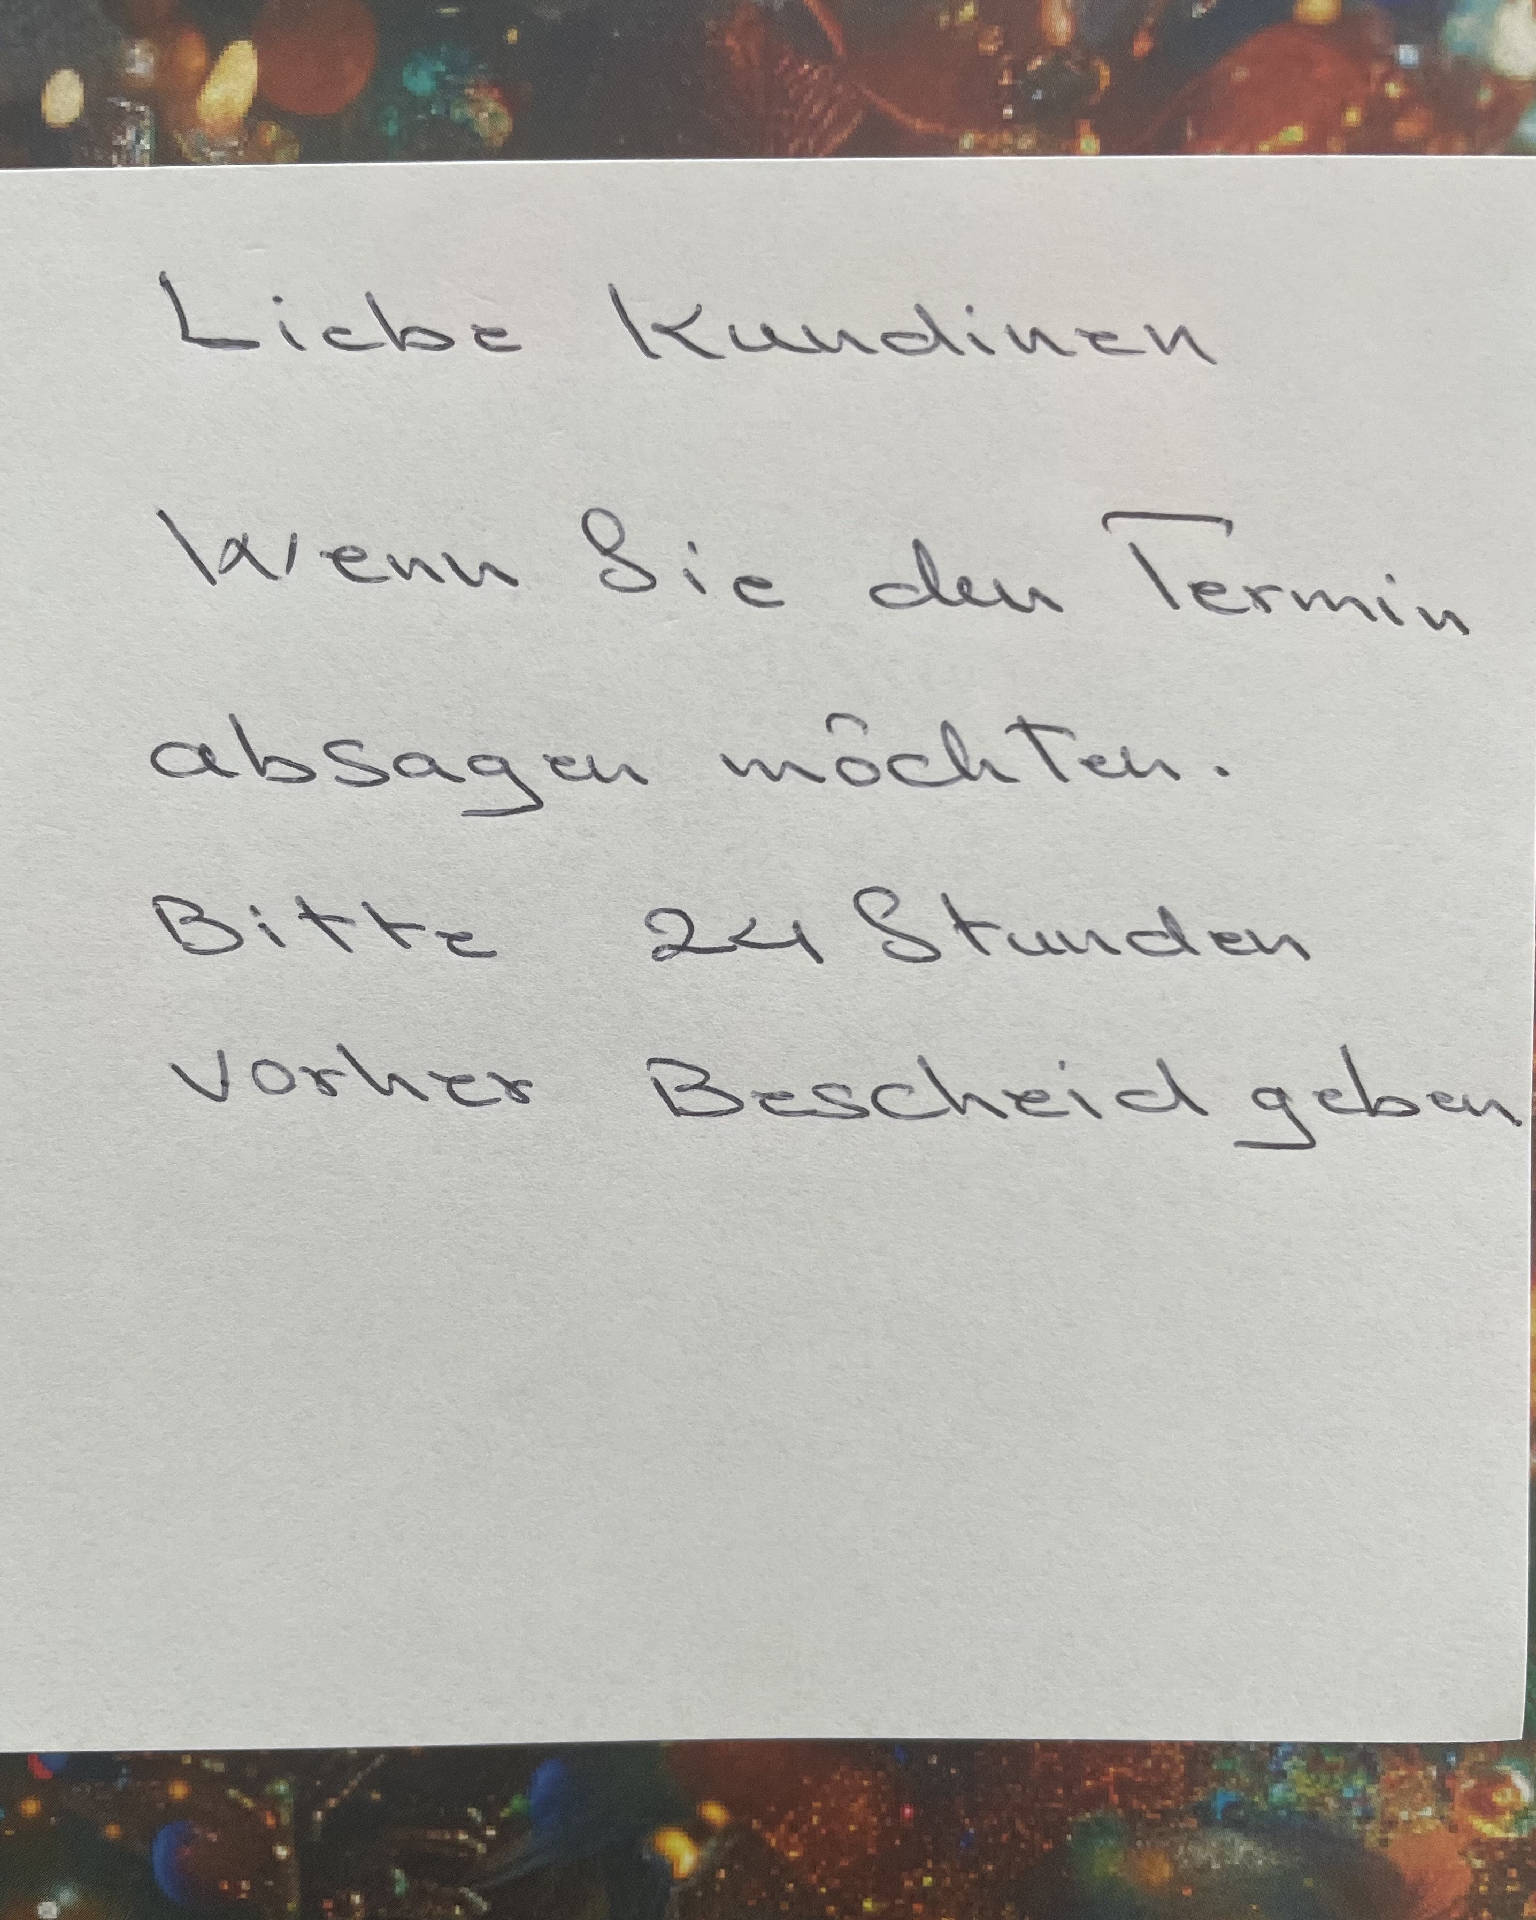 Liebe Kundinen
Wenn Sie den Termin
absagen möchten.
Bitte 24 Stunden
vorher Bescheid geben